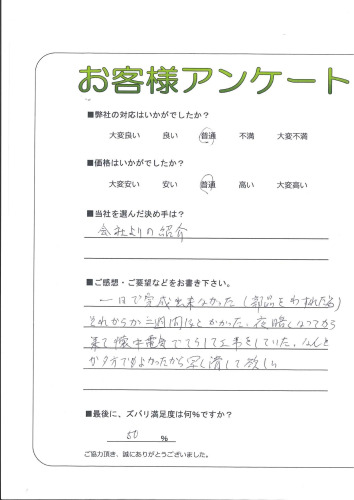 お客様アンケート
■弊社の対応はいかがでしたか?
大変良い 良い 普通 不満 大変不満
■価格はいかがでしたか?
大変安い 安い 普通 高い 大変高い
■当社を選んだ決め手は?
会社よりの紹介
■ご感想・ご要望などをお書き下さい。
一日で完成出来なかった(部品をわすれた為)
それからか二週間ほどかかった。夜暗くなってから
来て懐中電安でてらして工事をしていた。なんと
か夕方でもよかったから早く済して欲しい
■最後に、ズバリ満足度は何%ですか?
50 %
ご協力頂き、誠にありがとうございました。